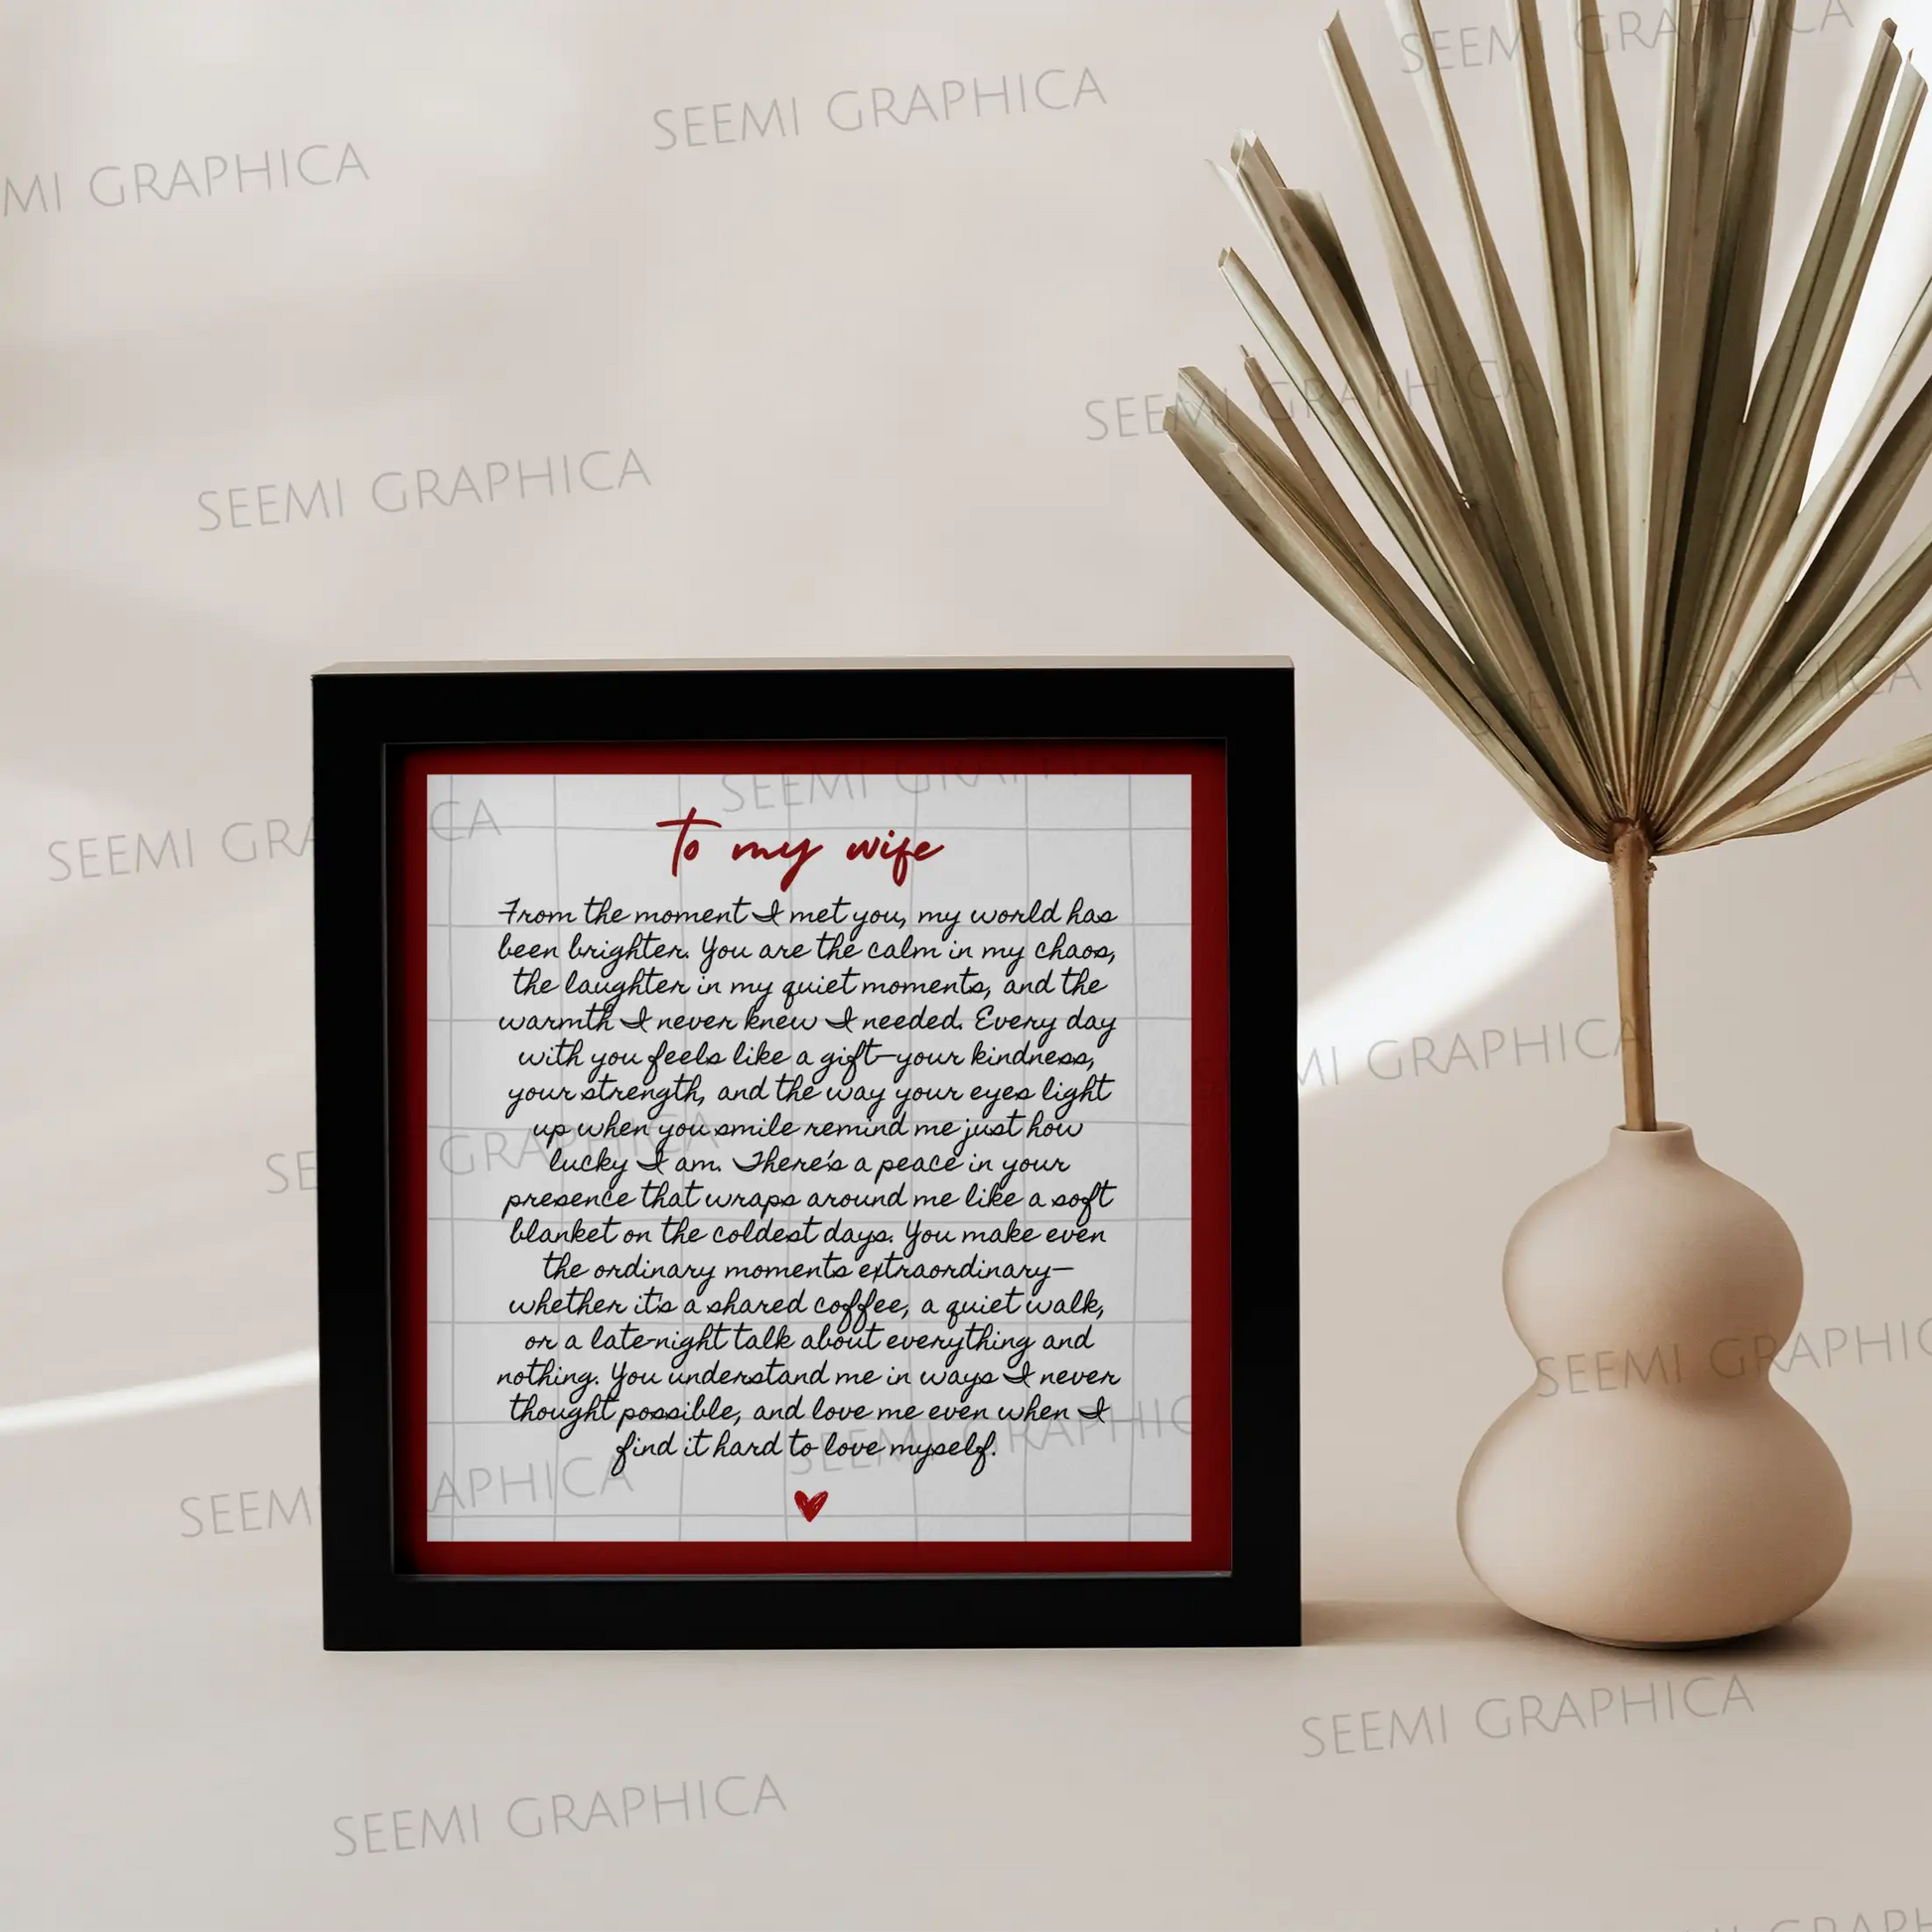 SEEMI GRAPHICA
to my wife
From the moment I met you, my world has
been brighter. You are the calm in my chaos,
the laughter in my quiet moments, and the
warmth I never knew I needed. Every day
with you feels like a gift—your kindness,
your strength, and the way your eyes light
up when you smile remind me just how
lucky I am. There's a peace in your
presence that wraps around me like a soft
blanket on the coldest days. You make even
the ordinary moments extraordinary—
whether it's a shared coffee, a quiet walk,
or a late-night talk about everything and
nothing. You understand me in ways I never
thought possible, and love me even when I
find it hard to love myself.